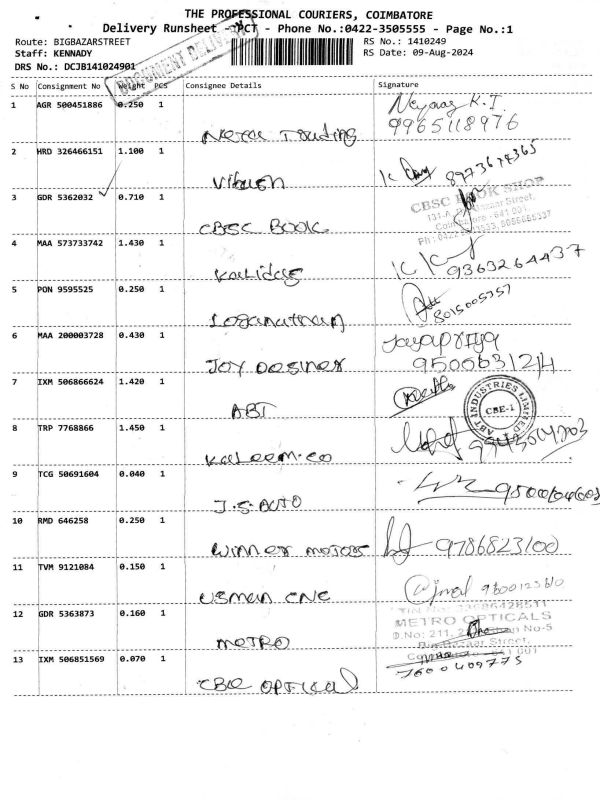 THE PROFESSIONAL COURIERS, COIMBATORE
Delivery Runsheet - PCT - Phone No.:0422-3505555 - Page No.:1
Route: BIGBAZARSTREET
RS No.: 1410249
Staff: KENNADY
RS Date: 09-Aug-2024
DRS No.: DCJB141024901
DOCUMENT DELIV
S No Consignment No Weight PCS Consignee Details Signature
1 AGR 500451886 0.250 1
K.T
9965118976
Trading
2 HRD 326466151 1.100 1
8973674365
3 GDR 5362032 0.710 1
CBSC BOOK SHOP
Bazaar Street,
CBSC BOOK
4 MAA 573733742 1.430 1
9363264437
Kalidas
5 PON 9595525 0.250 1
8015005757
Loganathan
6 MAA 200003728 0.430 1
Jayapriya
9500631214
JOY Desiner
7 IXM 506866624 1.420 1
ABT INDUSTRIES LIMITED
CBE-1
ABT
8 TRP 7768866 1.450 1
Kaleem.co
9 TCG 50691604 0.040 1
J.S. AUTO
10 RMD 646258 0.250 1
Winner motors
9786823100
11 TVM 9121084 0.150 1
9600123610
usman CNC
12 GDR 5363873 0.160 1
METRO OPTICALS
D.No: 211, No-5
Street,
metro
13 IXM 506851569 0.070 1
7600409775
OPTICAL